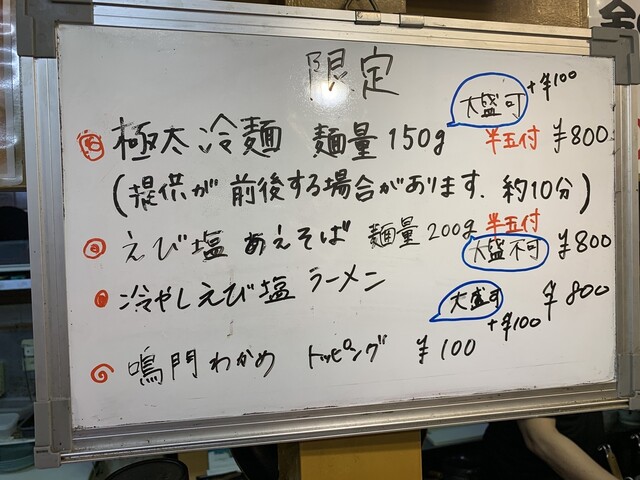 限定
大盛可 +¥100
極太冷麺 麺量150g 半玉付 ¥800
(提供が前後する場合があります、約10分)
えび塩 あえそば 麺量200g 半玉付 大盛不可 ¥800
冷やしえび塩 ラーメン 大盛可 +¥100 ¥800
鳴門わかめ トッピング ¥100